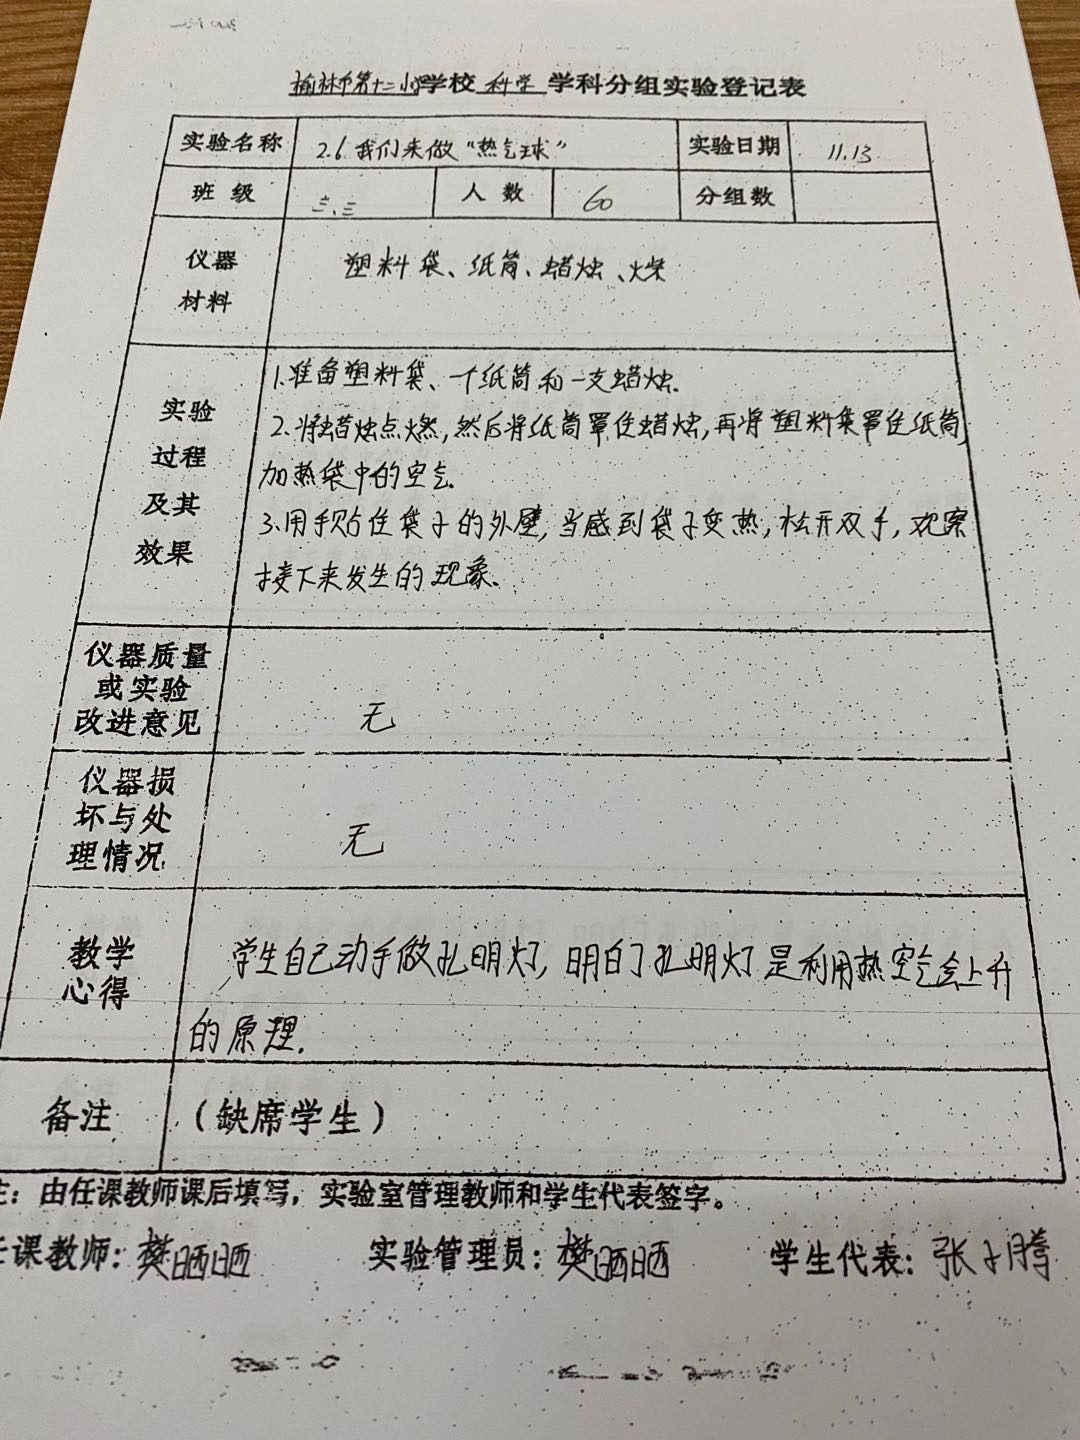 榆林市第十二小学校 科学 学科分组实验登记表
实验名称 2.6.我们来做“热气球” 实验日期 11.13
班 级 三.三 人 数 60 分组数
仪器
材料
塑料袋、纸筒、蜡烛、火柴
实验
过程
及其
效果
1.准备塑料袋、一个纸筒和一支蜡烛.
2.将蜡烛点燃,然后将纸筒罩住蜡烛,再将塑料袋罩住纸筒,
加热袋中的空气.
3.用手贴住袋子的外壁,当感到袋子变热,松开双手,观察
接下来发生的现象.
仪器质量
或实验
改进意见
无
仪器损
坏与处
理情况
无
教学
心得
学生自己动手做孔明灯,明白了孔明灯是利用热空气会上升
的原理.
备注 (缺席学生)
注:由任课教师课后填写,实验室管理教师和学生代表签字。
任课教师:樊晒晒 实验管理员:樊晒晒 学生代表:张子腾